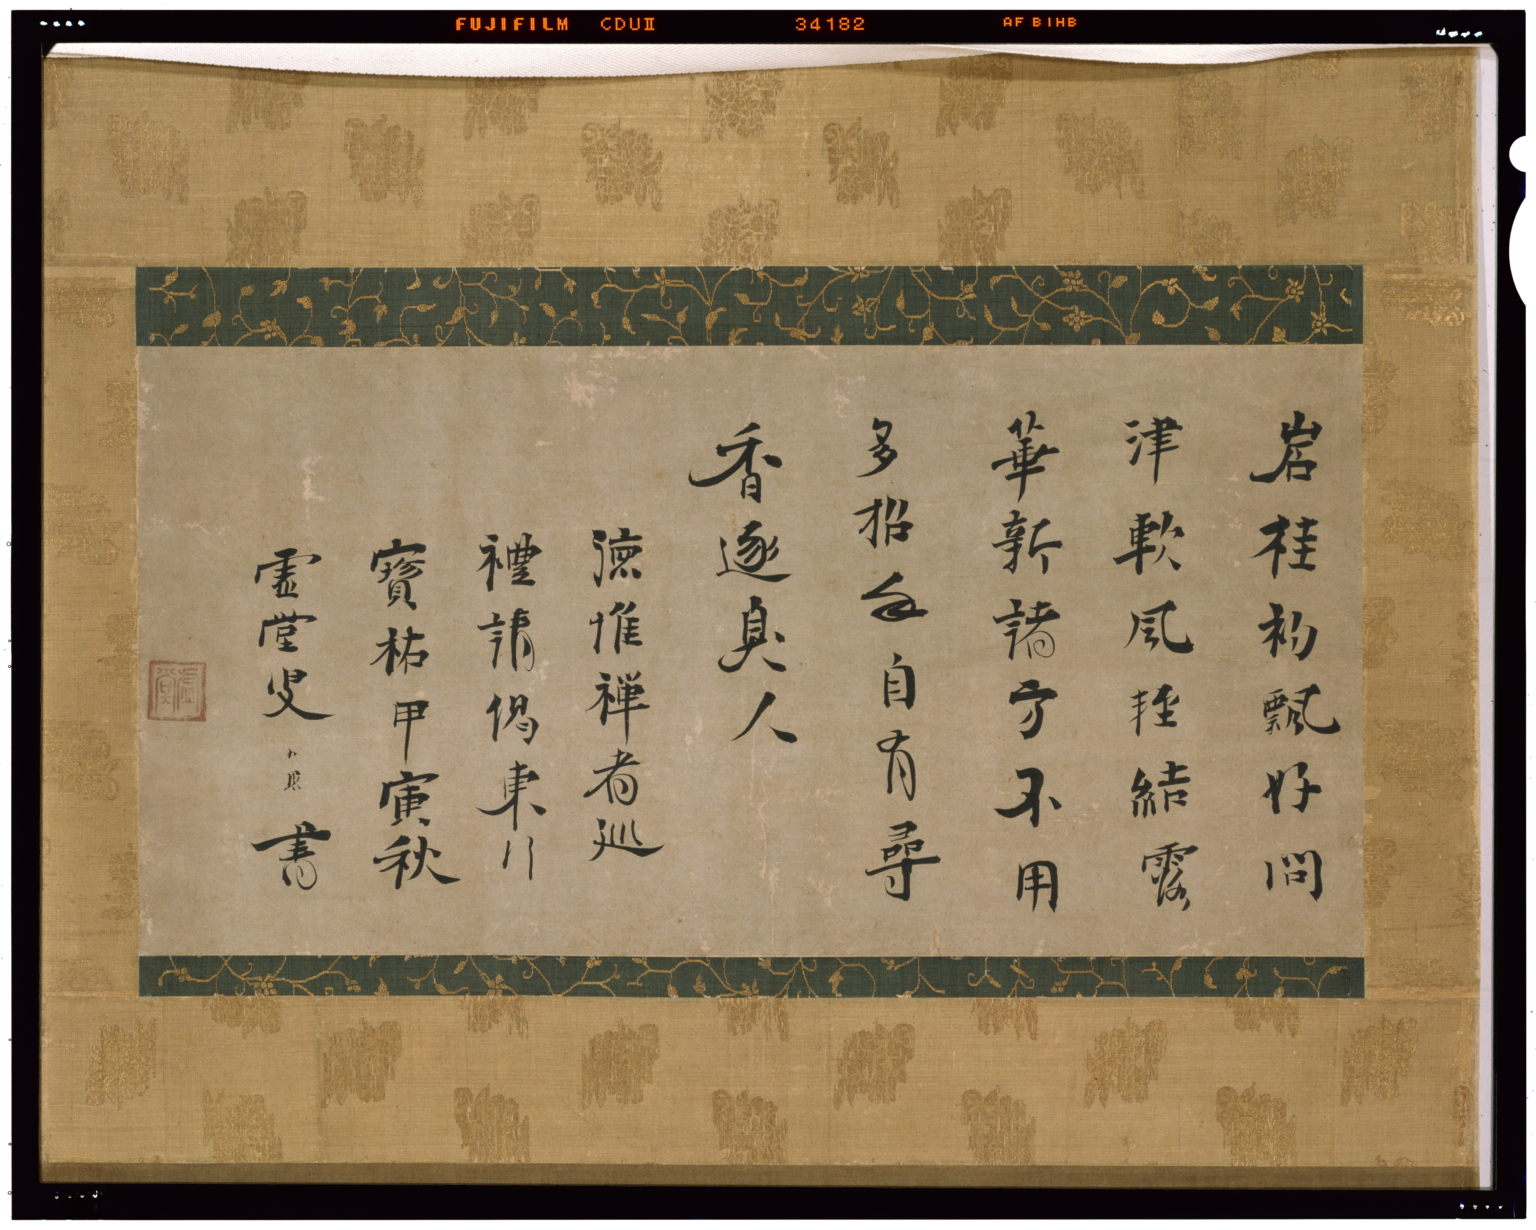 FUJIFILM CDUII 34182 AF BIHB
岩桂初飄好問
津軟風輕結露
華新諸方不用
多招手自有尋
香逐臭人
德惟禅者巡
禮請偈東行
寳祐甲寅秋
虚堂叟
書
虚堂